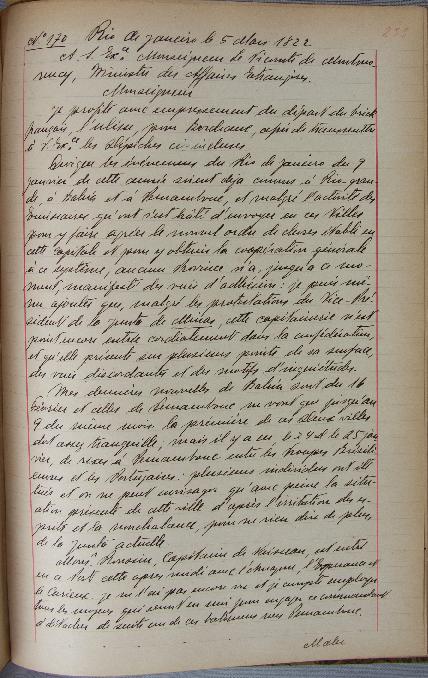 Nº 170 Rio de Janeiro le 5 Mars 1822 233
A. S. Exce. Monseigneur Le Vicomte de Montmo-
rency, Ministre des Affaires Etrangères.
Monseigneur
Je profite avec empressement du départ du brick
français, l'Ulisse, pour Bordeaux, afin de transmettre
à V. Exce. les Dépêches ci-incluses
Quoique les évènemens du Rio de Janeiro du 9
janvier de cette année soient déja connus à Rio-gran-
de, à Bahia et à Pernambuco, et malgré l'activité des
émissaires qu'ont s'est hâté d'envoyer en ces Villes
pour y faire agréer le nouvel ordre de choses établi en
cette capitale et pour y obtenir la coopération générale
à ce système, aucune Province n'a, jusqu'à ce mo-
ment, manifesté des vues d'adhésion: je puis mê-
me ajouter que, malgré les protestations du Vice-Pré-
sident de la junte de Minas, cette capitainerie n'est
point encore entrée cordialement dans la confédération,
et qu'elle présente sur plusieurs points de sa surface,
des vues discordantes et des motifs d'inquiétudes.
Mes dernières nouvelles de Bahia sont du 16
février et celles de Pernambuco ne vont que jusqu'au
9 du même mois. la première de ces deux villes
est assez tranquille, mais il y a eu, le 24 et le 25 jan-
vier, de rixes à Pernambuco entre les troupes Brésili-
ennes et les Portugaises. plusieurs individus ont été
tués et on ne peut envisager qu'avec peine la situ-
ation présente de cette ville d'après l'irritation des es-
prits et la nonchalance, pour ne rien dire de plus,
de la junte actuelle.
Roussin, Capitaine de Vaisseau, est entré
en ce Port cette après midi avec l'Amazone, l'Espérance et
le Curieux. je ne l'ai pas encore vu et je compte employer
tous les moyens qui seront en moi pour engager ce commandant
à détacher de suite un de ces batimens vers Pernambuco.